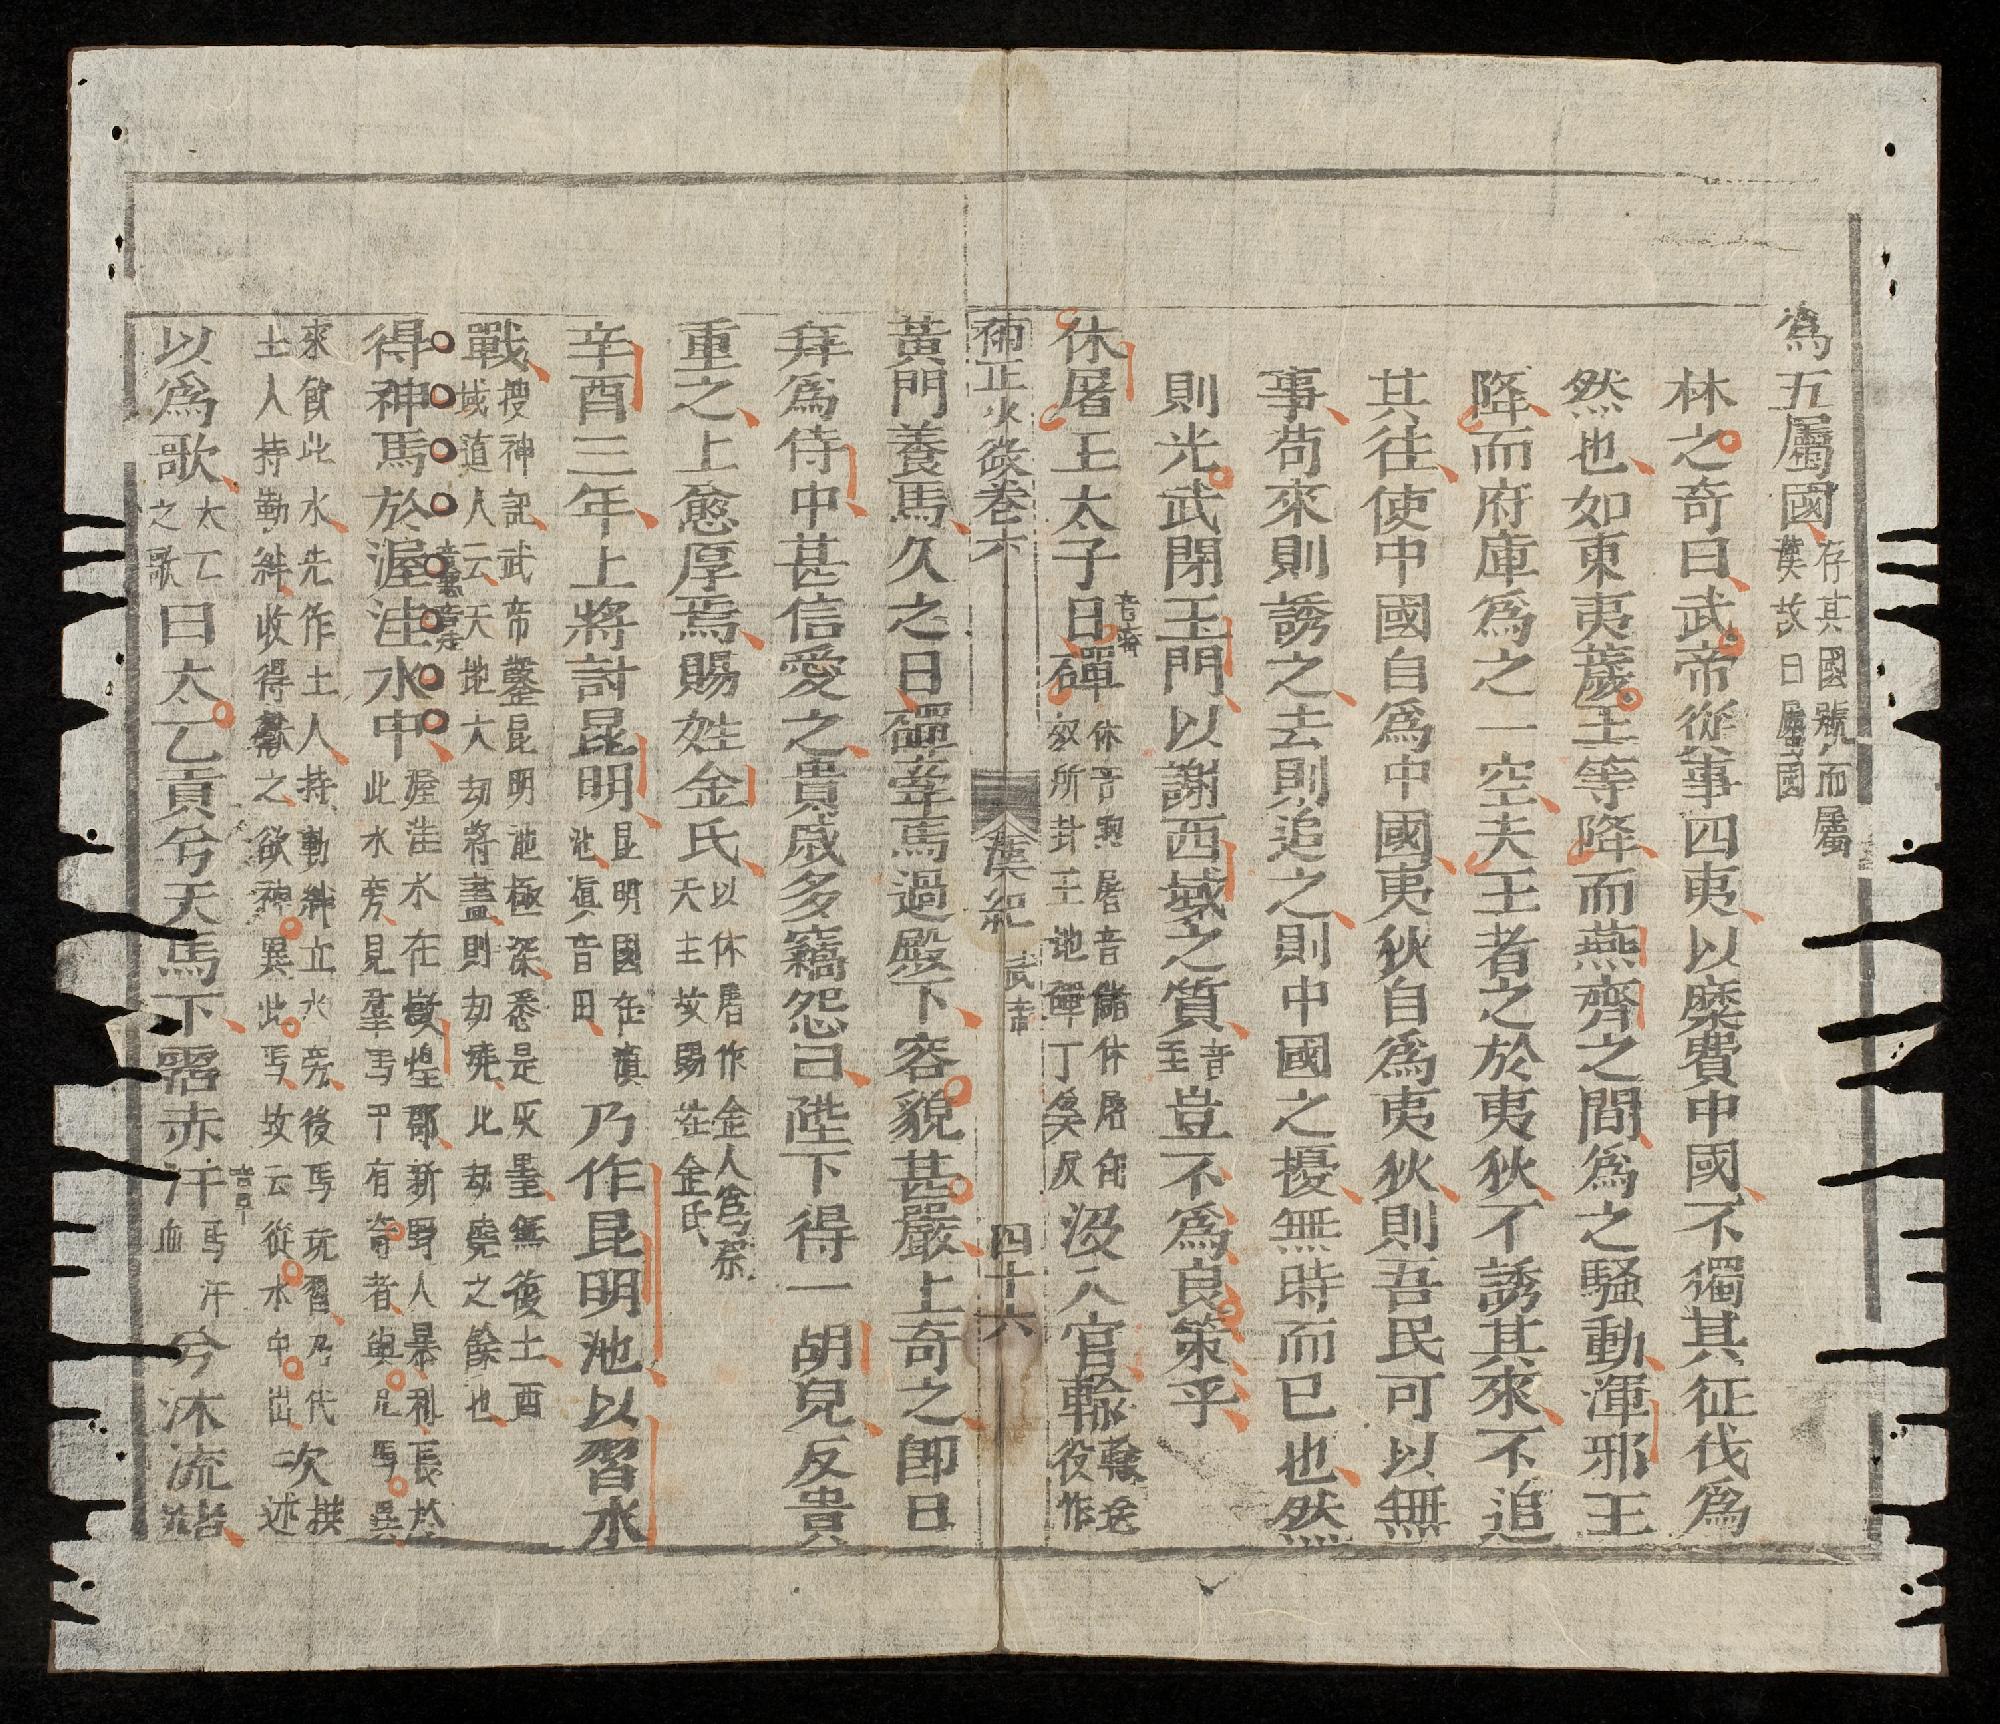 爲五屬國存其國號而屬漢故曰屬國
林之奇曰武帝從事四夷以糜費中國不獨其征伐爲
然也如東夷薉王等降而燕齊之間爲之騷動渾邪王
降而府庫爲之一空夫王者之於夷狄不誘其來不追
其往使中國自爲中國夷狄自爲夷狄則吾民可以無
事苟來則誘之去則追之則中國之擾無時而已也然
則光武閉玉門以謝西域之質音至豈不爲良策乎
休屠王太子日音密磾休音朽屠音儲休屠匈奴所封王地磾丁奚反沒入官輸輸送役作
卷六 漢紀 武帝 四十六
黃門養馬久之日磾牽馬過殿下容貌甚嚴上奇之卽日
拜爲侍中甚信愛之貴戚多竊怨曰陛下得一胡兒反貴
重之上愈厚焉賜姓金氏以休屠作金人爲祭天主故賜姓金氏
辛酉三年上將討昆明昆明國在滇池滇音田乃作昆明池以習水
戰搜神記武帝鑿昆明池極深悉是灰墨無復土西域道人云天地大劫將盡則劫燒此劫燒之餘也
得神馬於渥洼水中渥洼水在燉煌郡新野人暴利長於此水旁見羣馬中有奇者與凡馬異
來飮此水先作土人持勒絆立水旁後馬玩習乃代土人持勒絆收得獻之欲神異此馬故云從水中出次撰二述
以爲歌太乙之歌曰太乙貢兮天馬下霑赤汗馬汗血兮沐流赭